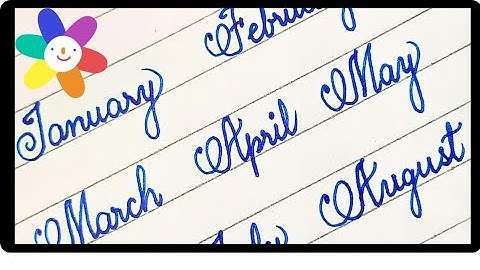 January Febru
March April May
July August